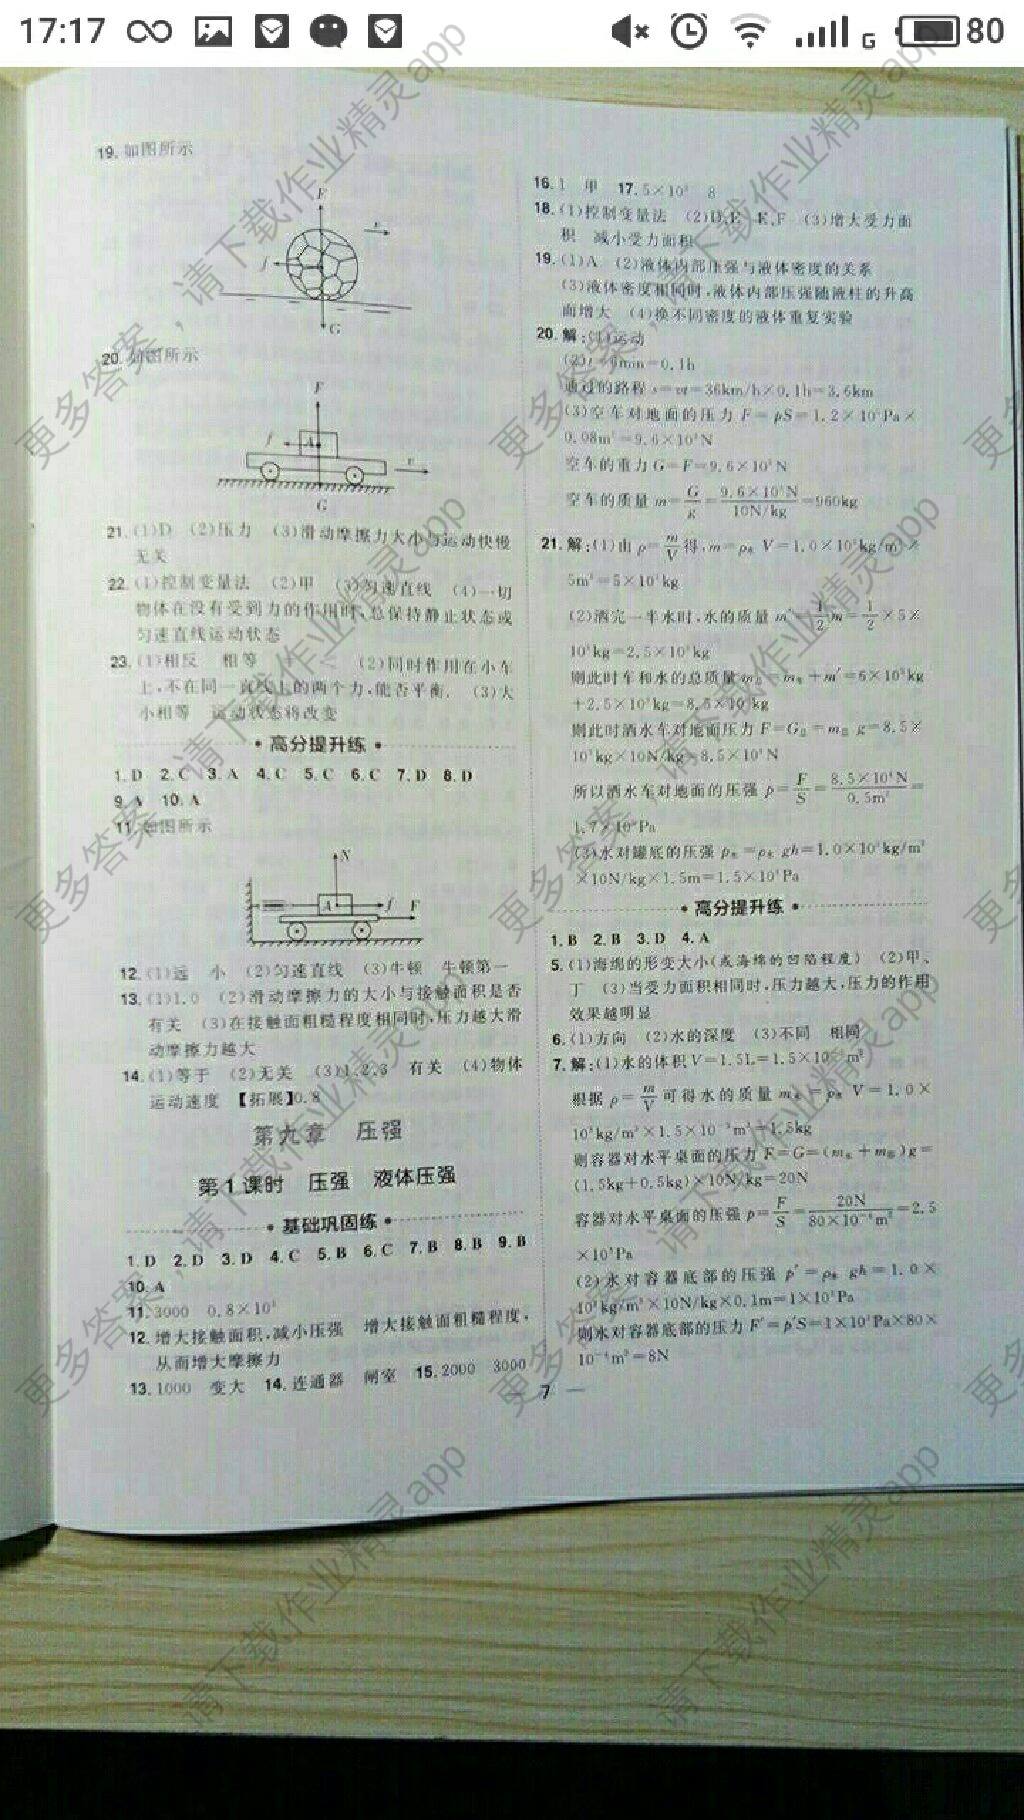 17:17
G
80
19.如图所示
F
v
f
G
20.如图所示
F
f
A
v
G
21.(1)D (2)压力 (3)滑动摩擦力大小与运动快慢
无关
22.(1)控制变量法 (2)甲 (3)匀速直线 (4)一切
物体在没有受到力的作用时,总保持静止状态或
匀速直线运动状态
23.(1)相反 相等 (2)同时作用在小车
上,不在同一直线上的两个力,能否平衡. (3)大
小相等 运动状态将改变
高分提升练
1.D 2.C 3.A 4.C 5.C 6.C 7.D 8.D
9.A 10.A
11.如图所示
N
A
f
F
12.(1)远 小 (2)匀速直线 (3)牛顿 牛顿第一
13.(1)1.0 (2)滑动摩擦力的大小与接触面积是否
有关 (3)在接触面粗糙程度相同时,压力越大滑
动摩擦力越大
14.(1)等于 (2)无关 (3)1、2、3 有关 (4)物体
运动速度 【拓展】0.8
第九章 压强
第1课时 压强 液体压强
基础巩固练
1.D 2.D 3.D 4.C 5.B 6.C 7.B 8.B 9.B
10.A
11.3000 0.8×10³
12.增大接触面积,减小压强 增大接触面粗糙程度,
从而增大摩擦力
13.1000 变大 14.连通器 闸室 15.2000 3000
16.1 甲 17.5×10³ 8
18.(1)控制变量法 (2)D、E E、F (3)增大受力面
积 减小受力面积
19.(1)A (2)液体内部压强与液体密度的关系
(3)液体密度相同时,液体内部压强随液柱的升高
而增大 (4)换不同密度的液体重复实验
20.解:(1)运动
(2)t=6min=0.1h
通过的路程s=vt=36km/h×0.1h=3.6km
(3)空车对地面的压力F=pS=1.2×10⁵Pa×
0.08m²=9.6×10³N
空车的重力G=F=9.6×10³N
空车的质量m=G/g=9.6×10³N/10N/kg=960kg
21.解:(1)由ρ=m/V得,m=ρ水V=1.0×10³kg/m³×
5m³=5×10³kg
(2)洒完一半水时,水的质量m′=1/2m=1/2×5×
10³kg=2.5×10³kg
则此时车和水的总质量m总=m车+m′=6×10³kg
+2.5×10³kg=8.5×10³kg
则此时洒水车对地面压力F=G总=m总g=8.5×
10³kg×10N/kg=8.5×10⁴N
所以洒水车对地面的压强p=F/S=8.5×10⁴N/0.5m²=
1.7×10⁵Pa
(3)水对罐底的压强p水=ρ水gh=1.0×10³kg/m³
×10N/kg×1.5m=1.5×10⁴Pa
高分提升练
1.B 2.B 3.D 4.A
5.(1)海绵的形变大小(或海绵的凹陷程度) (2)甲、
丁 (3)当受力面积相同时,压力越大,压力的作用
效果越明显
6.(1)方向 (2)水的深度 (3)不同 相同
7.解:(1)水的体积V=1.5L=1.5×10⁻³m³
根据ρ=m/V可得水的质量m水=ρ水V=1.0×
10³kg/m³×1.5×10⁻³m³=1.5kg
则容器对水平桌面的压力F=G=(m水+m容)g=
(1.5kg+0.5kg)×10N/kg=20N
容器对水平桌面的压强p=F/S=20N/80×10⁻⁴m²=2.5
×10³Pa
(2)水对容器底部的压强p′=ρ水gh=1.0×
10³kg/m³×10N/kg×0.1m=1×10³Pa
则水对容器底部的压力F′=p′S=1×10³Pa×80×
10⁻⁴m²=8N
7
更多答案,请下载作业精灵app